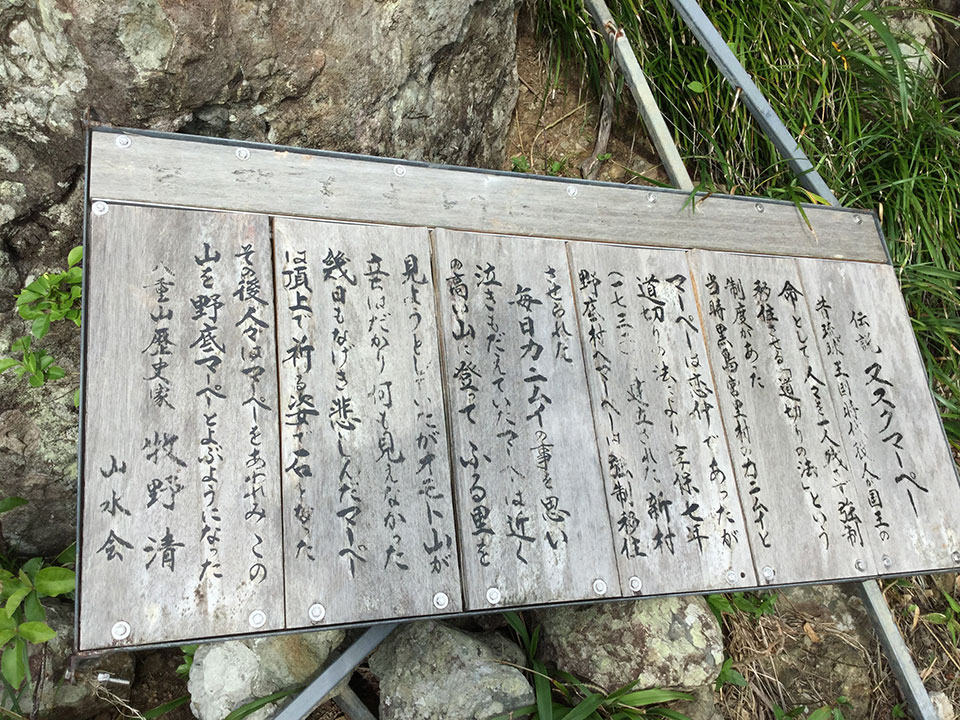 伝説 ススクマーペー
昔琉球王国時代役人が国王の
命として人々を一人残らず強制
移住させる「道切りの法」という
制度があった
当時黒島宮里村のカニムイと
マーペーは恋仲であったが
道切りの法により享保七年
(一七三二) 建立された新村
野底村へマーペーは強制移住
させられた
毎日カニムイの事を思い
泣きもだえていたマーペーは近く
の高い山に登ってふる里を
見ようとしていたがオモト山が
立はだかり何も見えなかった
幾日もなげき悲しんだマーペー
は頂上で祈る姿で石となった
その後人々はマーペーをあわれみこの
山を野底マーペとよぶようになった
八重山歴史家 牧野清
山水会